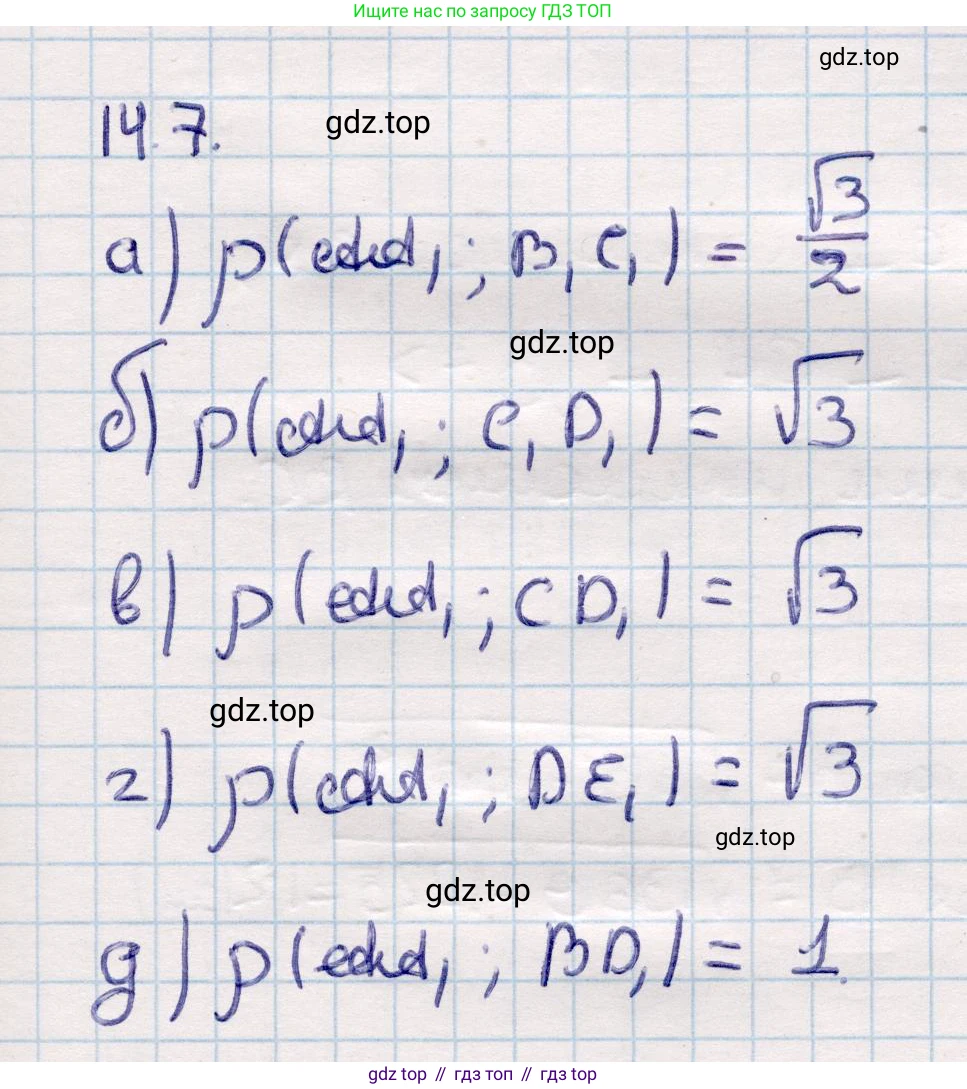 Ищите нас по запросу ГДЗ ТОП
gdz.top
14.7.
gdz.top
а) ρ(AA₁; B₁C₁) = √3/2
gdz.top
б) ρ(AA₁; C₁D₁) = √3
в) ρ(AA₁; CD₁) = √3
gdz.top
г) ρ(AA₁; DE₁) = √3
gdz.top
gdz.top
д) ρ(AA₁; BD₁) = 1.
gdz top // гдз топ // gdz top